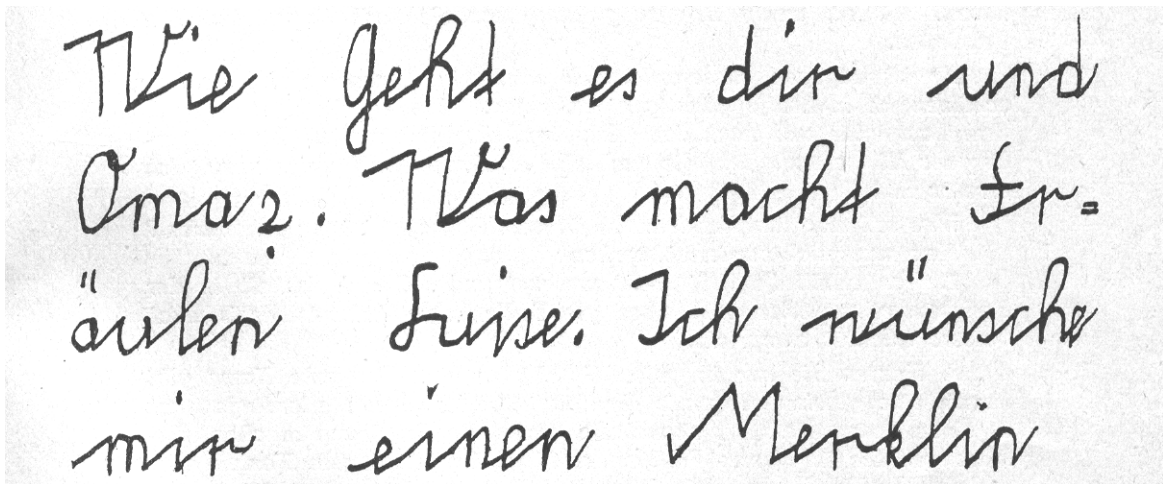 Wie Geht es dir und
Oma?. Was macht Fr=
äulen Luise. Ich wünsche
mir einen Merklin